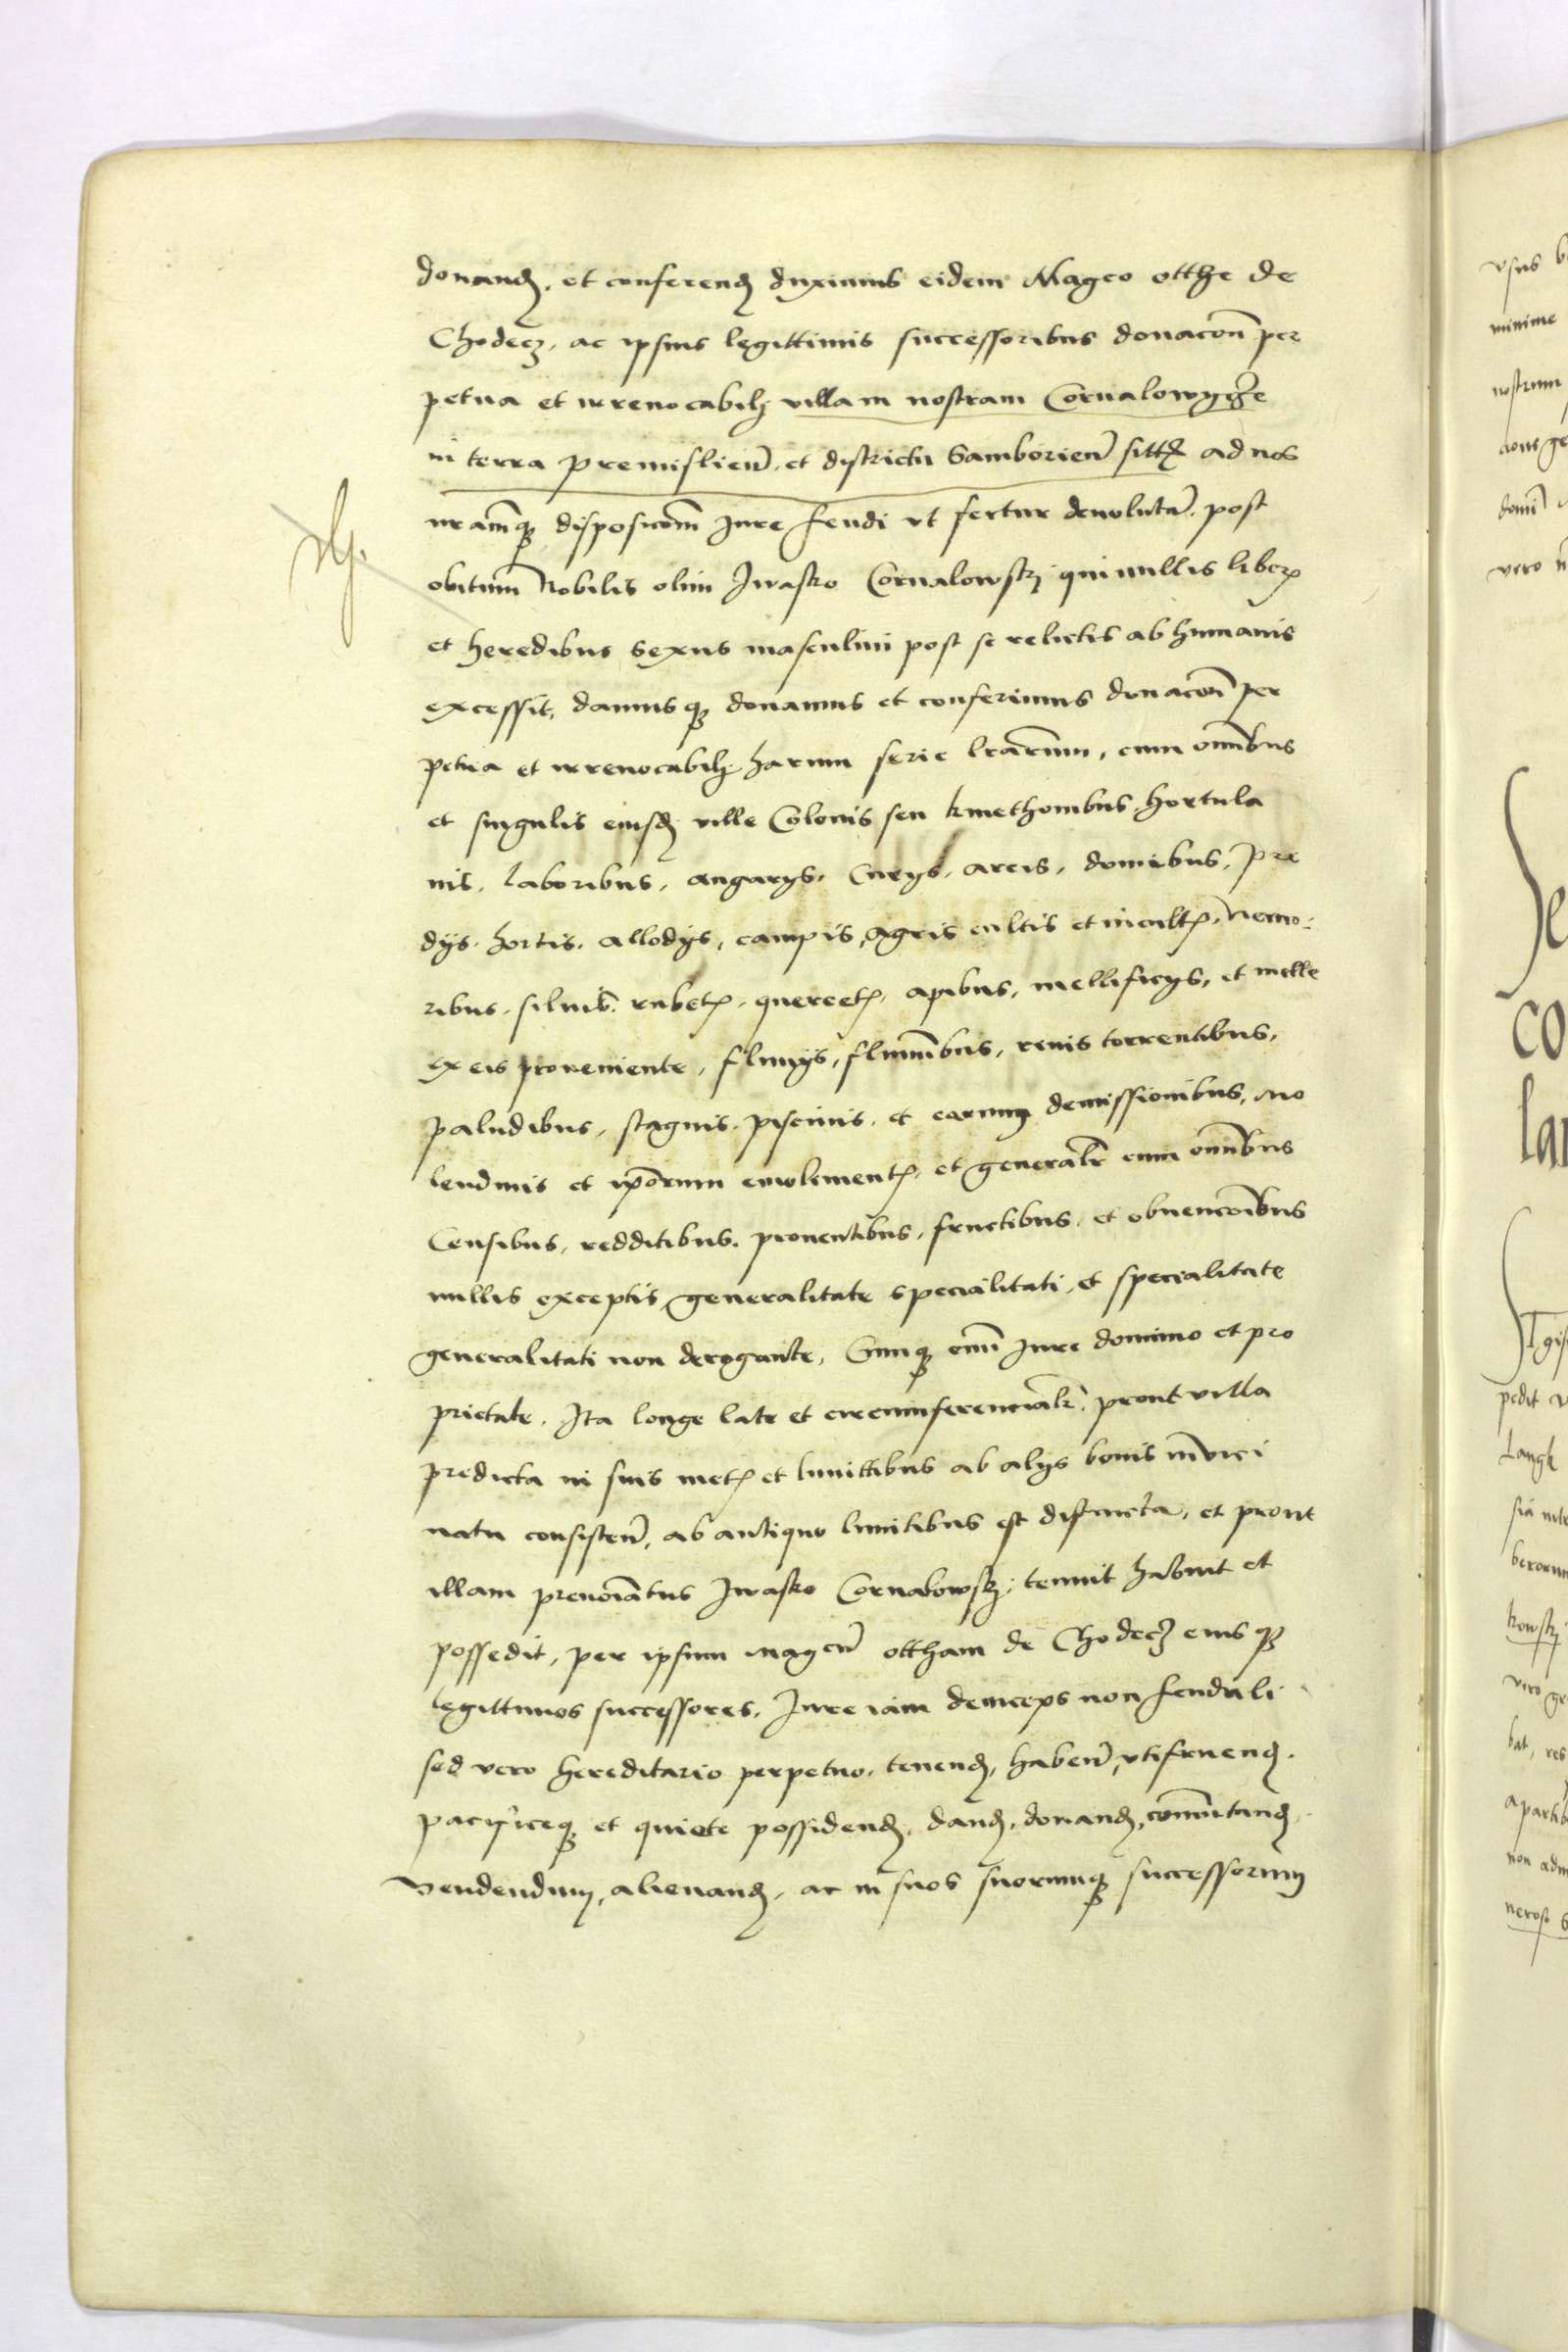 donand, et conferend duximus eidem Magco otthe de
Chodecz, ac ipsius legittimis successoribus donacōn per
petua et irrenocabili villam nostram Cornalowycze
in terra premislien̄. et districtu Samborien̄ sitt̄ ad nos
nr̄amqȝ disposicōm Jure feudi vt fertur deuolutā. post
obitum Nobilis olim Iwasko Cornalowskj qui nullis liber
et heredibus sexus masculini post se relictis ab humanis
excessit, damusqȝ donamus et conferimus donacōn per
petua et irreuocabili harum serie lr̄arum, cum om̄ibus
et singulis eiusd ville Colonis seu kmethonibus, hortula
nis, laboribus, angarys, Curys, areis, domibus, pre
dys. hortis. allodys, campis, Agris cultis et incult, Nemo⸗
ribus, siluib. rubet, quercet, apibus, mellificys, et melle
ex eis proueniente, fluuys, fluminībus, riuis torrentibus,
paludibus, stagnis, piscinis, et earum demissionibus, Mo
lendinis et ip̄orum emoliment, et generalr̄ cum om̄ibus
Censibus, redditibus. prouentibus, fructibus, et obuencōibus
nullis exceptis generalitate specialitati, et specialitate
generalitati non derogante, Cumqȝ om̄i Jure dominio et pro
prietate. Ita longe late et circumferencialr̄. prout villa
predicta in suis met et limittibus ab alys bonis in vici
natu consisten̄, ab antiquo limitibus est distincta, et prout
illam prenoīatus Iwasko Cornalowskj tenuit habuit et
possedit, per ipsum Magcū ottham de Chodecz eiusqȝ
legittimos successores, Jure iam deinceps non feudali
sed vero hereditario perpetuo, tenend, haben̄, vtifruend.
pacificeqȝ et quiete possidend, dand, donand, com̄utand,
Vendendum, alienand, ac in suos suorumqȝ successorum